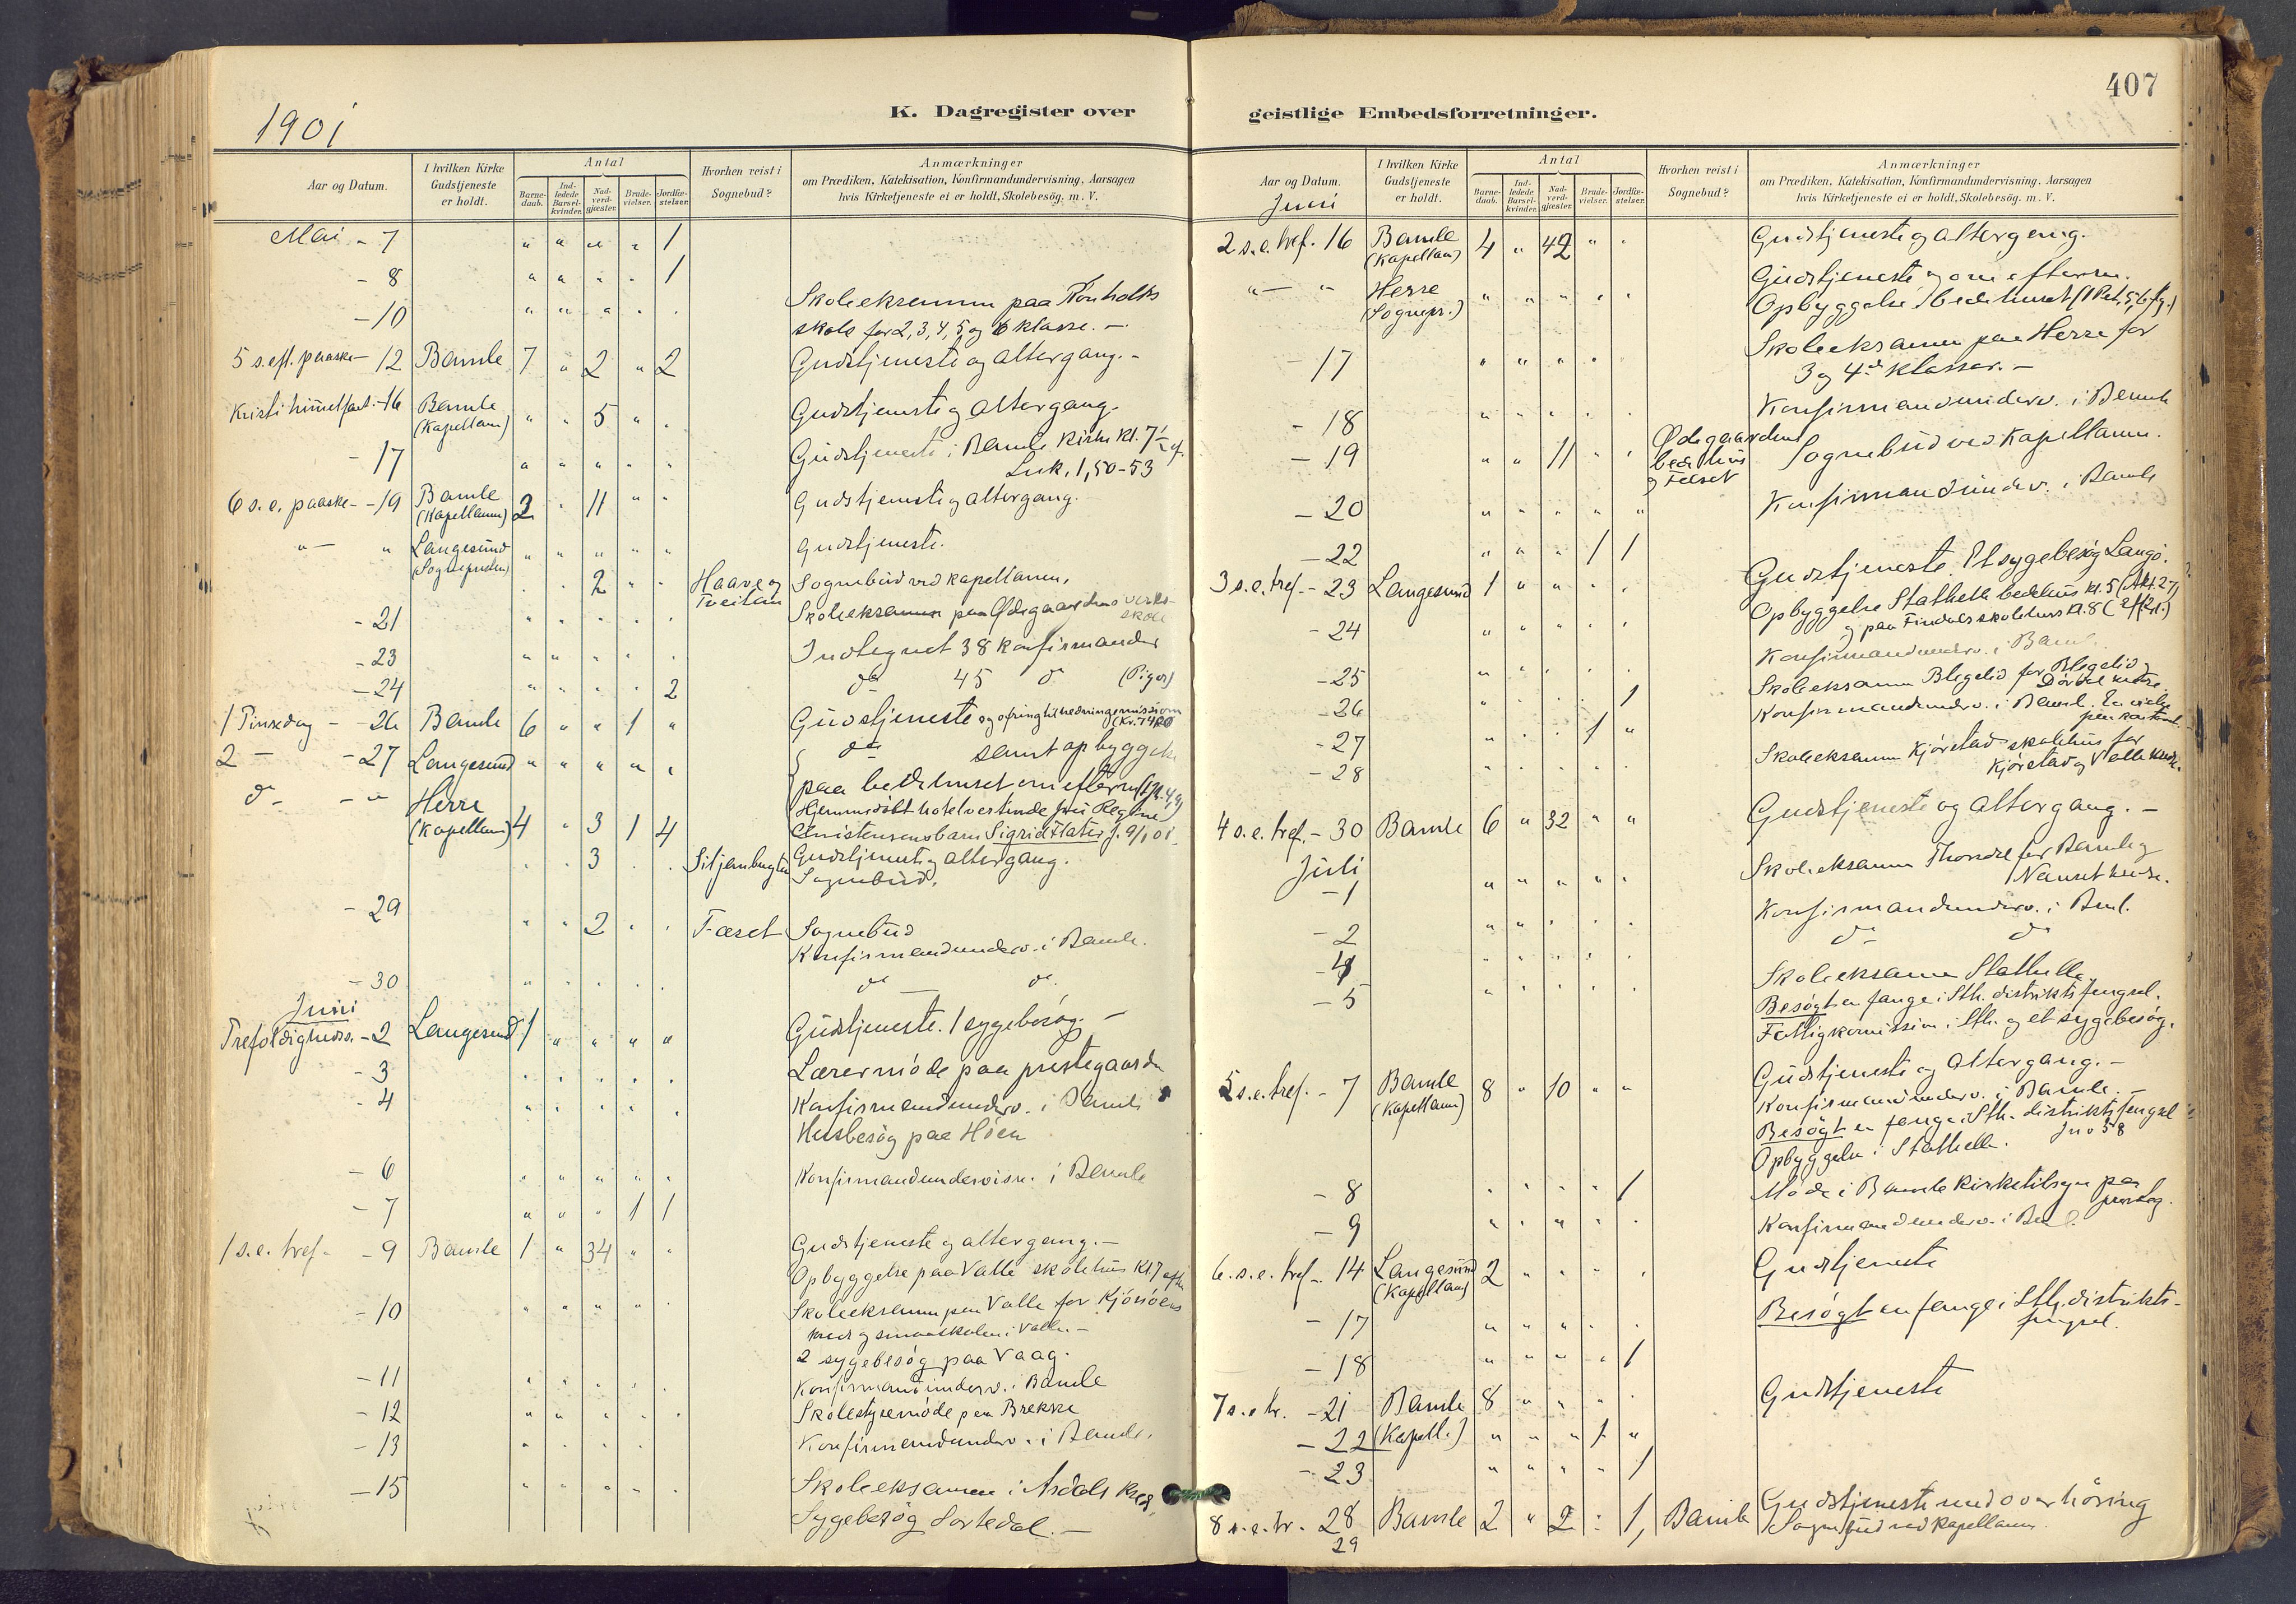 1901
K. Dagregister over
Aar og Datum.
I hvilken Kirke Gudstjeneste er holdt.
Antal
Barnedaab.
Indledede Barselkvinder.
Nadverdgjæster.
Brudevielser.
Jordfæstelser.
Hvorhen reist i Sognebud?
Anmærkninger
om Prædiken, Katekisation, Konfirmandundervisning, Aarsagen
hvis Kirketjeneste ei er holdt, Skolebesøg. m. V.
Mai - 7 " " " " 1
- 8 " " " " 1
- 10 " " " " " Skoleeksamen paa Rønholts
skole for 2, 3, 4, 5 og 6 klasse. -
5 s. eft. paaske - 12 Bamle 7 " 2 " 2 Gudstjeneste og altergang. -
Kristi himmelfart. - 16 Bamle (Kapellanen) " " 5 " " Gudstjeneste og altergang.
- 17 " " " " " Gudstjeneste i Bamle kirke kl. 7
Luk. 1, 50-53
6 s. e. paaske - - 19 Bamle (Kapellanen) 2 " 11 " " Gudstjeneste og altergang.
" — " Langesund (Sognepresten) " " " " " Gudstjeneste.
" " 2 " " Haave og Tveitan Sognebud ved kapellanen.
- 21 " " " " " Skoleeksamen paa Ødegaardens verks skole
- 23 " " " " " Indtegnet 38 konfirmander
- 24 " " " " 2 do 45 do (Piger)
1 Pinsedag - - 26 Bamle 6 " " 1 " Gudstjeneste og ofring til hedningemissionen
2 - - 27 Langesund " " " " " do samt opbyggelse
paa bedehuset om efterm.
do - - " Herre (Kapellan) 4 " 3 1 4 Hjemmedøbt hotelvertinde fru Regine
Christensens barn Sigrid
" " 3 " " Siljanbugten Gudstjeneste og altergang.
Sognebud.
- 29 " " 2 " " Fæset Sognebud
Konfirmandunderv. i Bamle.
- 30 " " " " " do — do.
Juni
Trefoldigheds. - 2 Langesund 1 " " " " Gudstjeneste. 1 sygebesøg. -
- 3 " " " " " Lærermøde paa prestegaarden
- 4 " " " " " Konfirmandunderv. i Bamle
Husbesøg paa Høen
- 6 " " " " " Konfirmandundervisn. i Bamle
- 7 " " " 1 1
1 s. e. tref. - - 9 Bamle 1 " 34 " " Gudstjeneste og altergang. -
Opbyggelse paa Valle skolehus kl. 7 eftm
- 10 " " " " " Skoleeksamen paa Valle for Kjønøens
kreds og smaaskolen i Valle. -
2 sygebesøg paa Vaag.
- 11 " " " " " Konfirmandunderv. i Bamle
- 12 " " " " " Skolestyremøde paa Brekke
- 13 " " " " Konfirmandunderv. i Bamle.
- 15 " " " " " Skoleeksamen i Asdals kreds.
Sygebesøg Sortedal. -
407
geistlige Embedsforretninger.
Aar og Datum.
I hvilken Kirke Gudstjeneste er holdt.
Antal
Barnedaab.
Indledede Barselkvinder.
Nadverdgjæster.
Brudevielser.
Jordfæstelser.
Hvorhen reist i Sognebud?
Anmærkninger
om Prædiken, Katekisation, Konfirmandundervisning, Aarsagen
hvis Kirketjeneste ei er holdt, Skolebesøg. m. V.
Juni
2 s. e. tref. 16 Bamle (Kapellan) 4 " 42 " " Gudstjeneste og altergang.
" — " Herre (Sognepr.) " " " " " Gudstjeneste og om efterm.
Opbyggelse i bedehuset (1 Pet. 5, 6 fg.)
- 17 " " " " Skoleeksamen paa Herre for
3 og 4de klasser. -
- 18 " " " " " Konfirmandunderv. i Bamle
- 19 " " 11 " " Ødegaardens bedehus og Feset Sognebud ved Kapellanen.
- 20 " " " " " Konfirmandunderv. i Bamle
- 22 " " " 1 1
3 s. e. tref. - 23 Langesund 1 " " " " Gudstjeneste. Et sygebesøg Langø.
Opbyggelse Stathelle bedehus kl. 5 (Akt. 27)
og paa Findals skolehus kl. 8
- 24 " " " " " Konfirmandunderv. i Bamle
- 25 " " " " " Skoleeksamen Blegelid for Blegelid og
Dørdal kreds
- 26 " " " " 1 Konfirmandunderv. i Bamle. En vielse
paa kontoret.
- 27 " " " 1 "
- 28 " " " " " Skoleeksamen Kjørstad skolehus for
Kjørstad og Valle kreds.
4 s. e. tref. - 30 Bamle 6 " 32 " " Gudstjeneste og altergang. -
Juli
- 1 " " " " " Skoleeksamen for Bamle og
Nanset kreds.
- 2 " " " " " Konfirmandunderv. i Baml.
- 4 " " " " " do do
- 5 " " " " " Skoleeksamen Stathelle.
Besøgt en fange i Sth. distriktsfengsel.
Fattigkomission i Sth. og et sygebesøg.
5 s. e. tref. - 7 Bamle (Kapellanen) 8 " 10 " " Gudstjeneste og altergang. -
Konfirmandunderv. i Bamle. -
Besøgt en fange i Sth. distriktsfengsel
Opbyggelse i Stathelle.
- 8 " " " " 1 Møde i Bamle kirketilsyn paa
presteg.
- 9 " " " " " Konfirmandunderv. i Baml.
6. s. e. tref. - 14 Langesund (Kapellan) 2 " " " " Gudstjeneste
- 17 " " " " " Besøgt en fange i Sth. distrikts-
fengsel.
- 18 " " " " 1
7 s. e. tr. - 21 Bamle 8 " " " " Gudstjeneste
- 22 (Kapell.) " " " 1 "
- 23 " " " " 1
8 s. e. tr. - 28 Bamle 2 " 2 " 1, Bamle Gudstjeneste med overhøring
29 Sognebud ved kapellanen